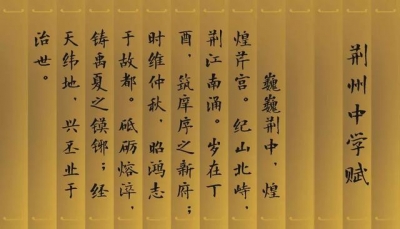 荆州中学赋
巍巍荆中，煌
煌芹宫。纪山北峙，
荆江南涌。岁在丁
酉，筑庠序之新府；
时维仲秋，昭鸿志
于故都。砥砺熔淬，
铸禹夏之镆铘；经
天纬地，兴丕业于
治世。